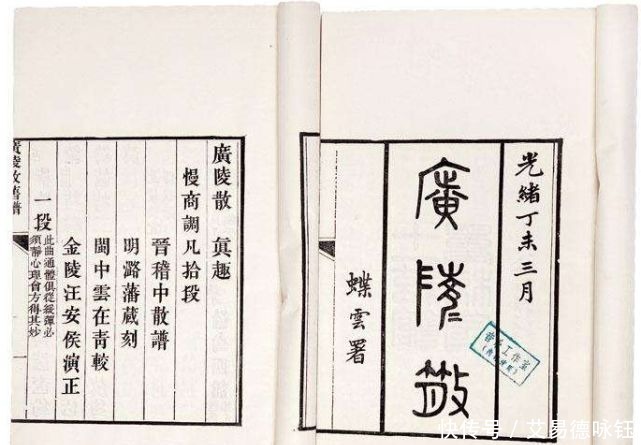 光緒丁未三月
廣陵散
蝶雲署
廣陵散 真趣
慢商調凡拾段
晉嵇中散譜
明潞藩蔵刻
閩中雲在青較
金陵汪安侯演正
一段
此曲通體俱從緩彈必
須靜心理會方得其妙
廣陵散舊譜
工作室
快传号 / 艾易德咏钰